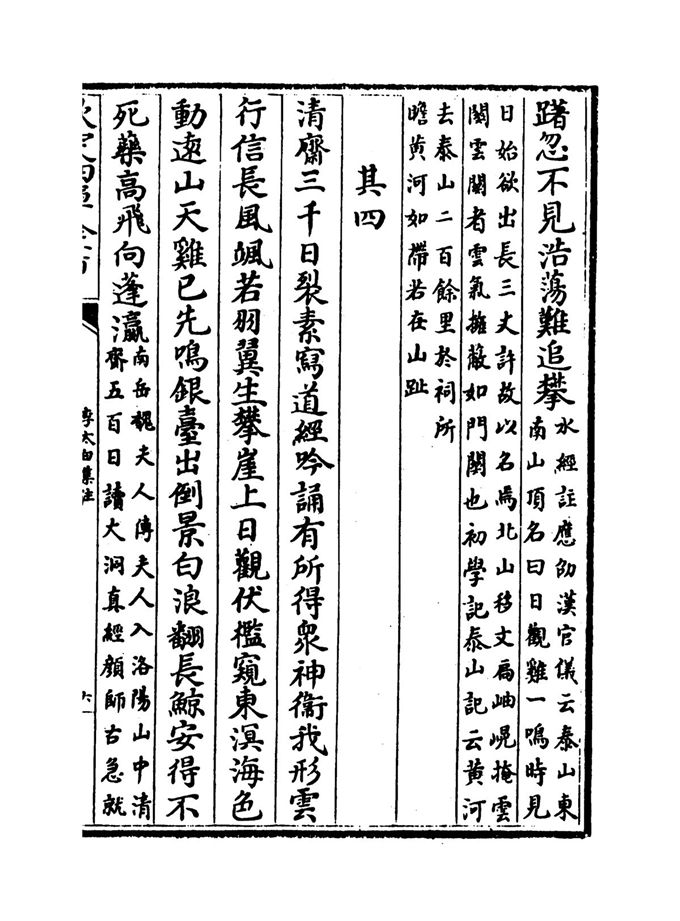 躇忽不見浩蕩難追攀水經註應劭漢官儀云泰山東
南山頂名曰日觀雞一鳴時見
日始欲出長三丈許故以名焉北山移文扃岫幌掩雲
關雲關者雲氣擁蔽如門關也初學記泰山記云黄河
去泰山二百餘里於祠所
瞻黄河如帶若在山趾
其四
清齋三千日裂素寫道經吟誦有所得衆神衞我形雲
行信長風颯若羽翼生攀崖上日觀伏檻窺東溟海色
動遠山天雞已先鳴銀臺出倒景白浪翻長鯨安得不
死藥高飛向蓬瀛南岳魏夫人傳夫人入洛陽山中清
齋五百日讀大洞真經顔師古急就
李太白集注